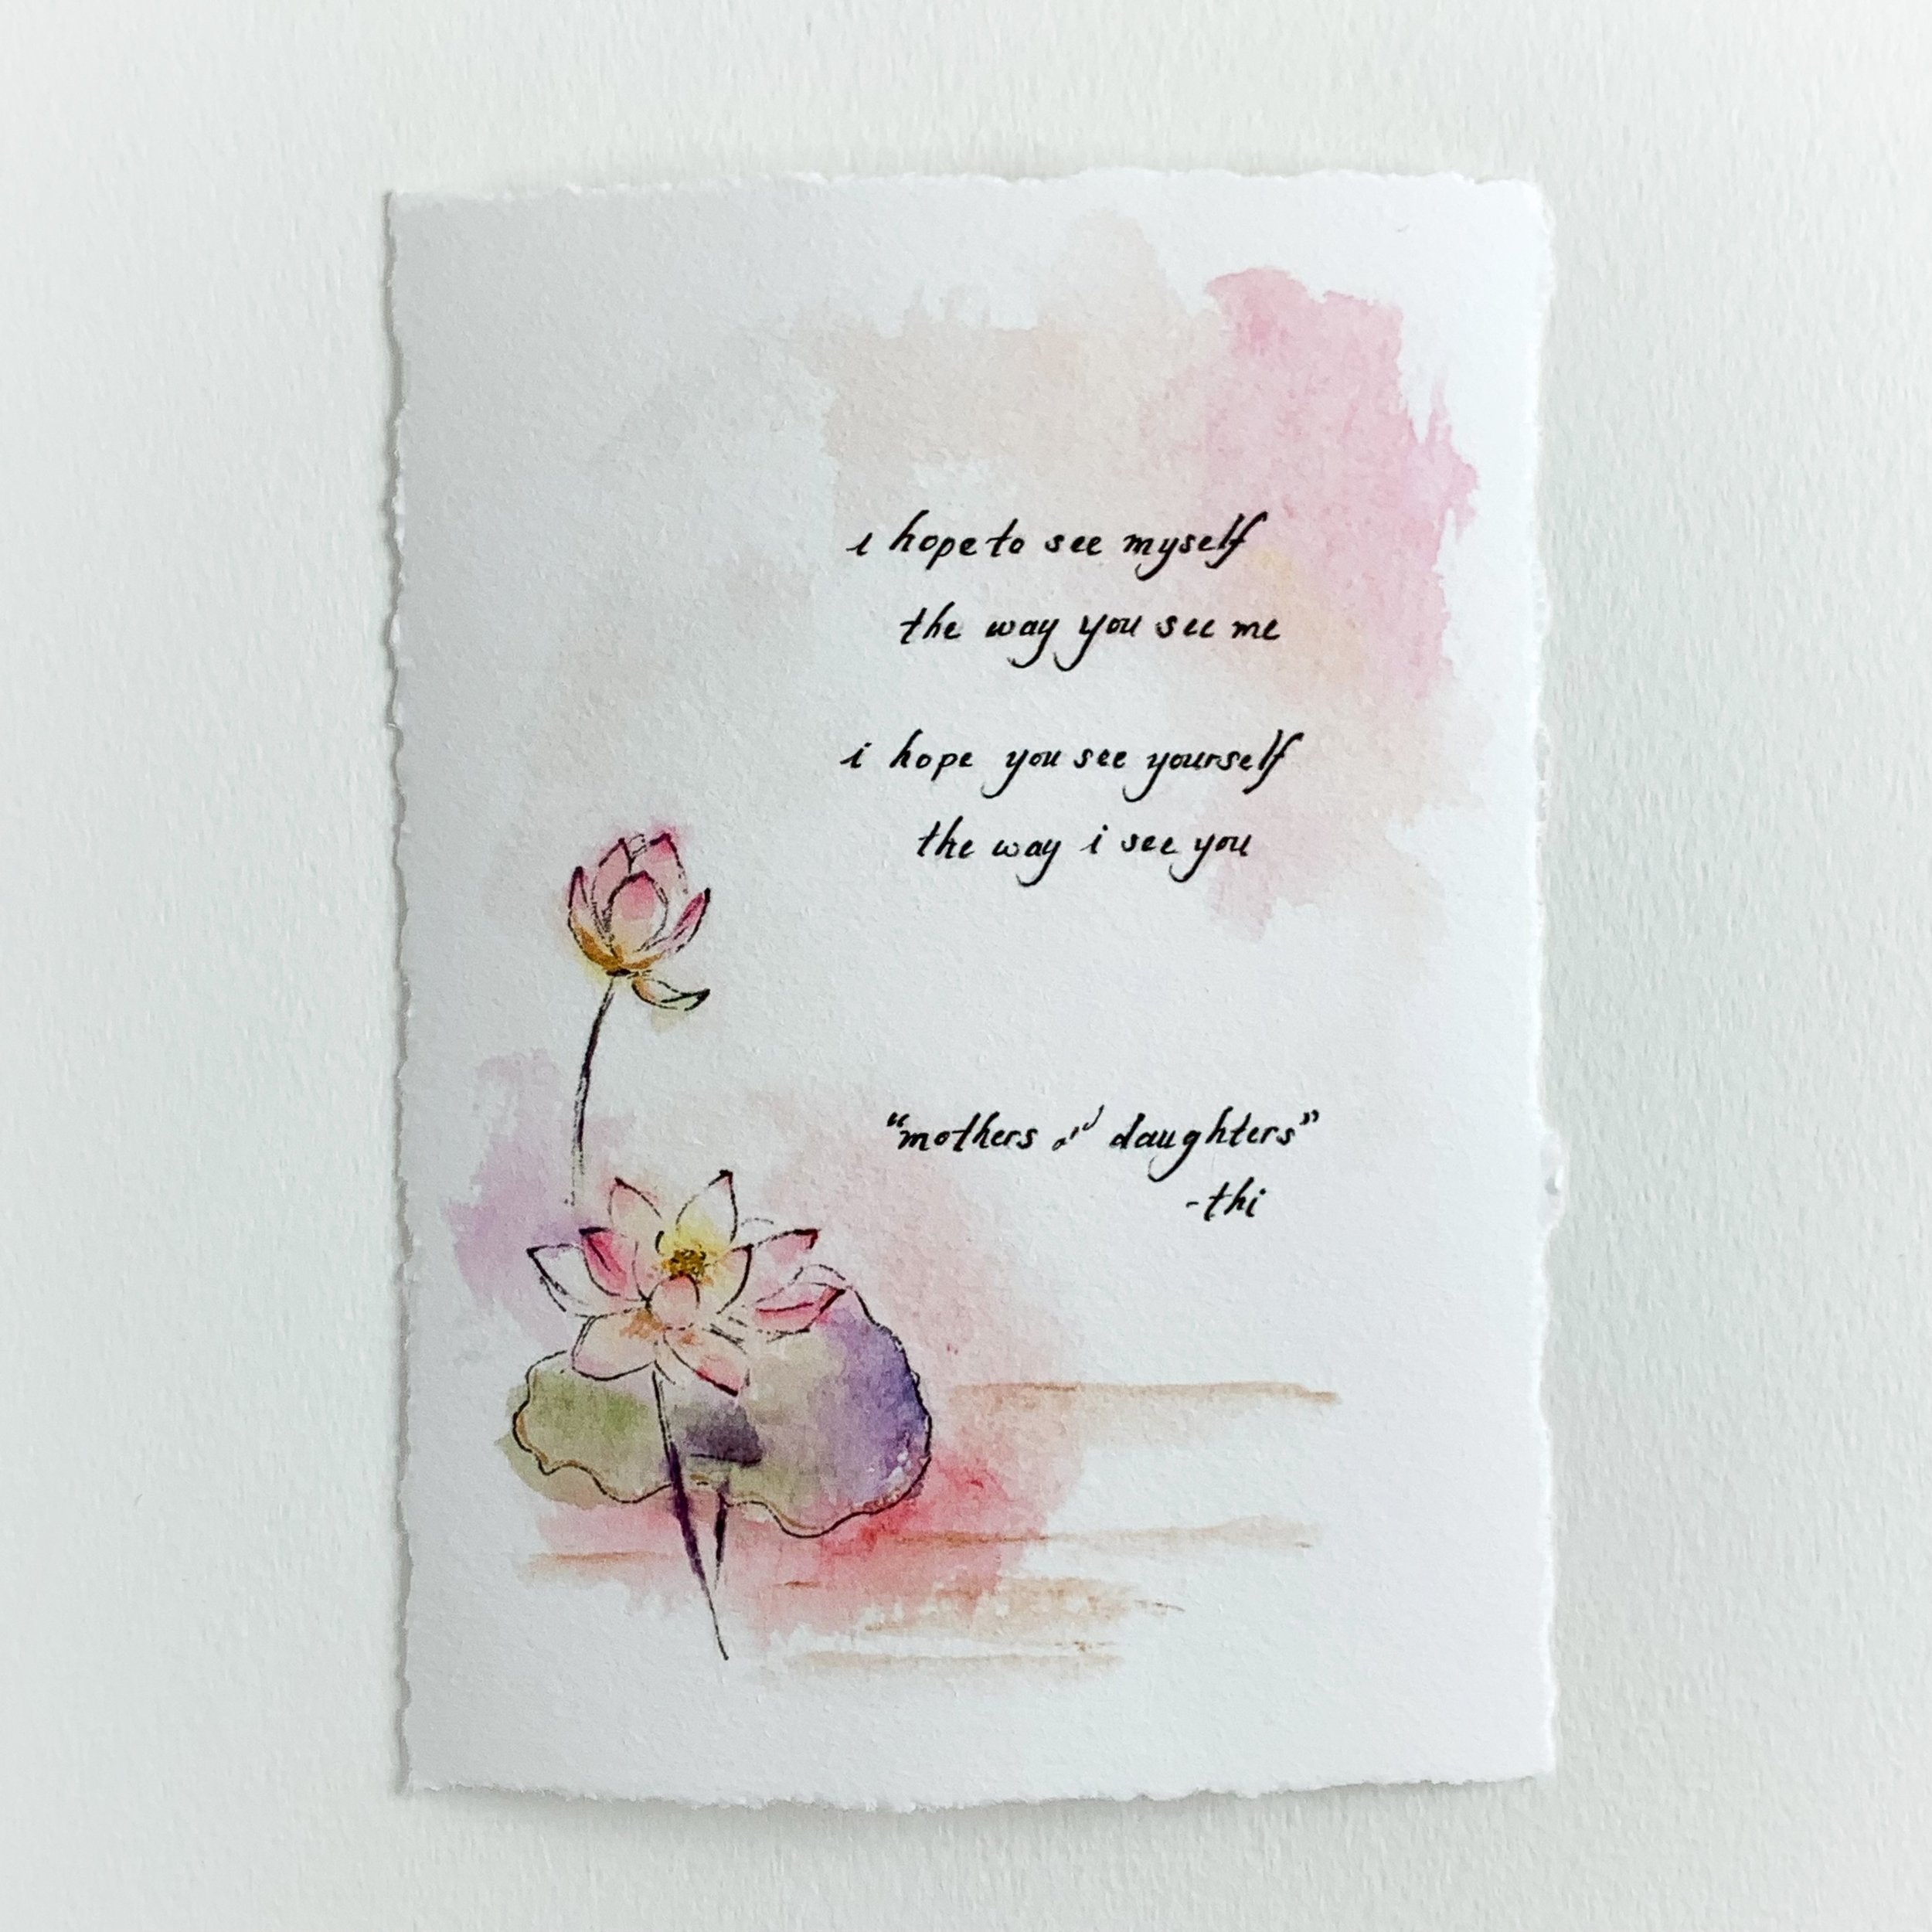 i hope to see myself
the way you see me
i hope you see yourself
the way i see you
"mothers and daughters"
-thi